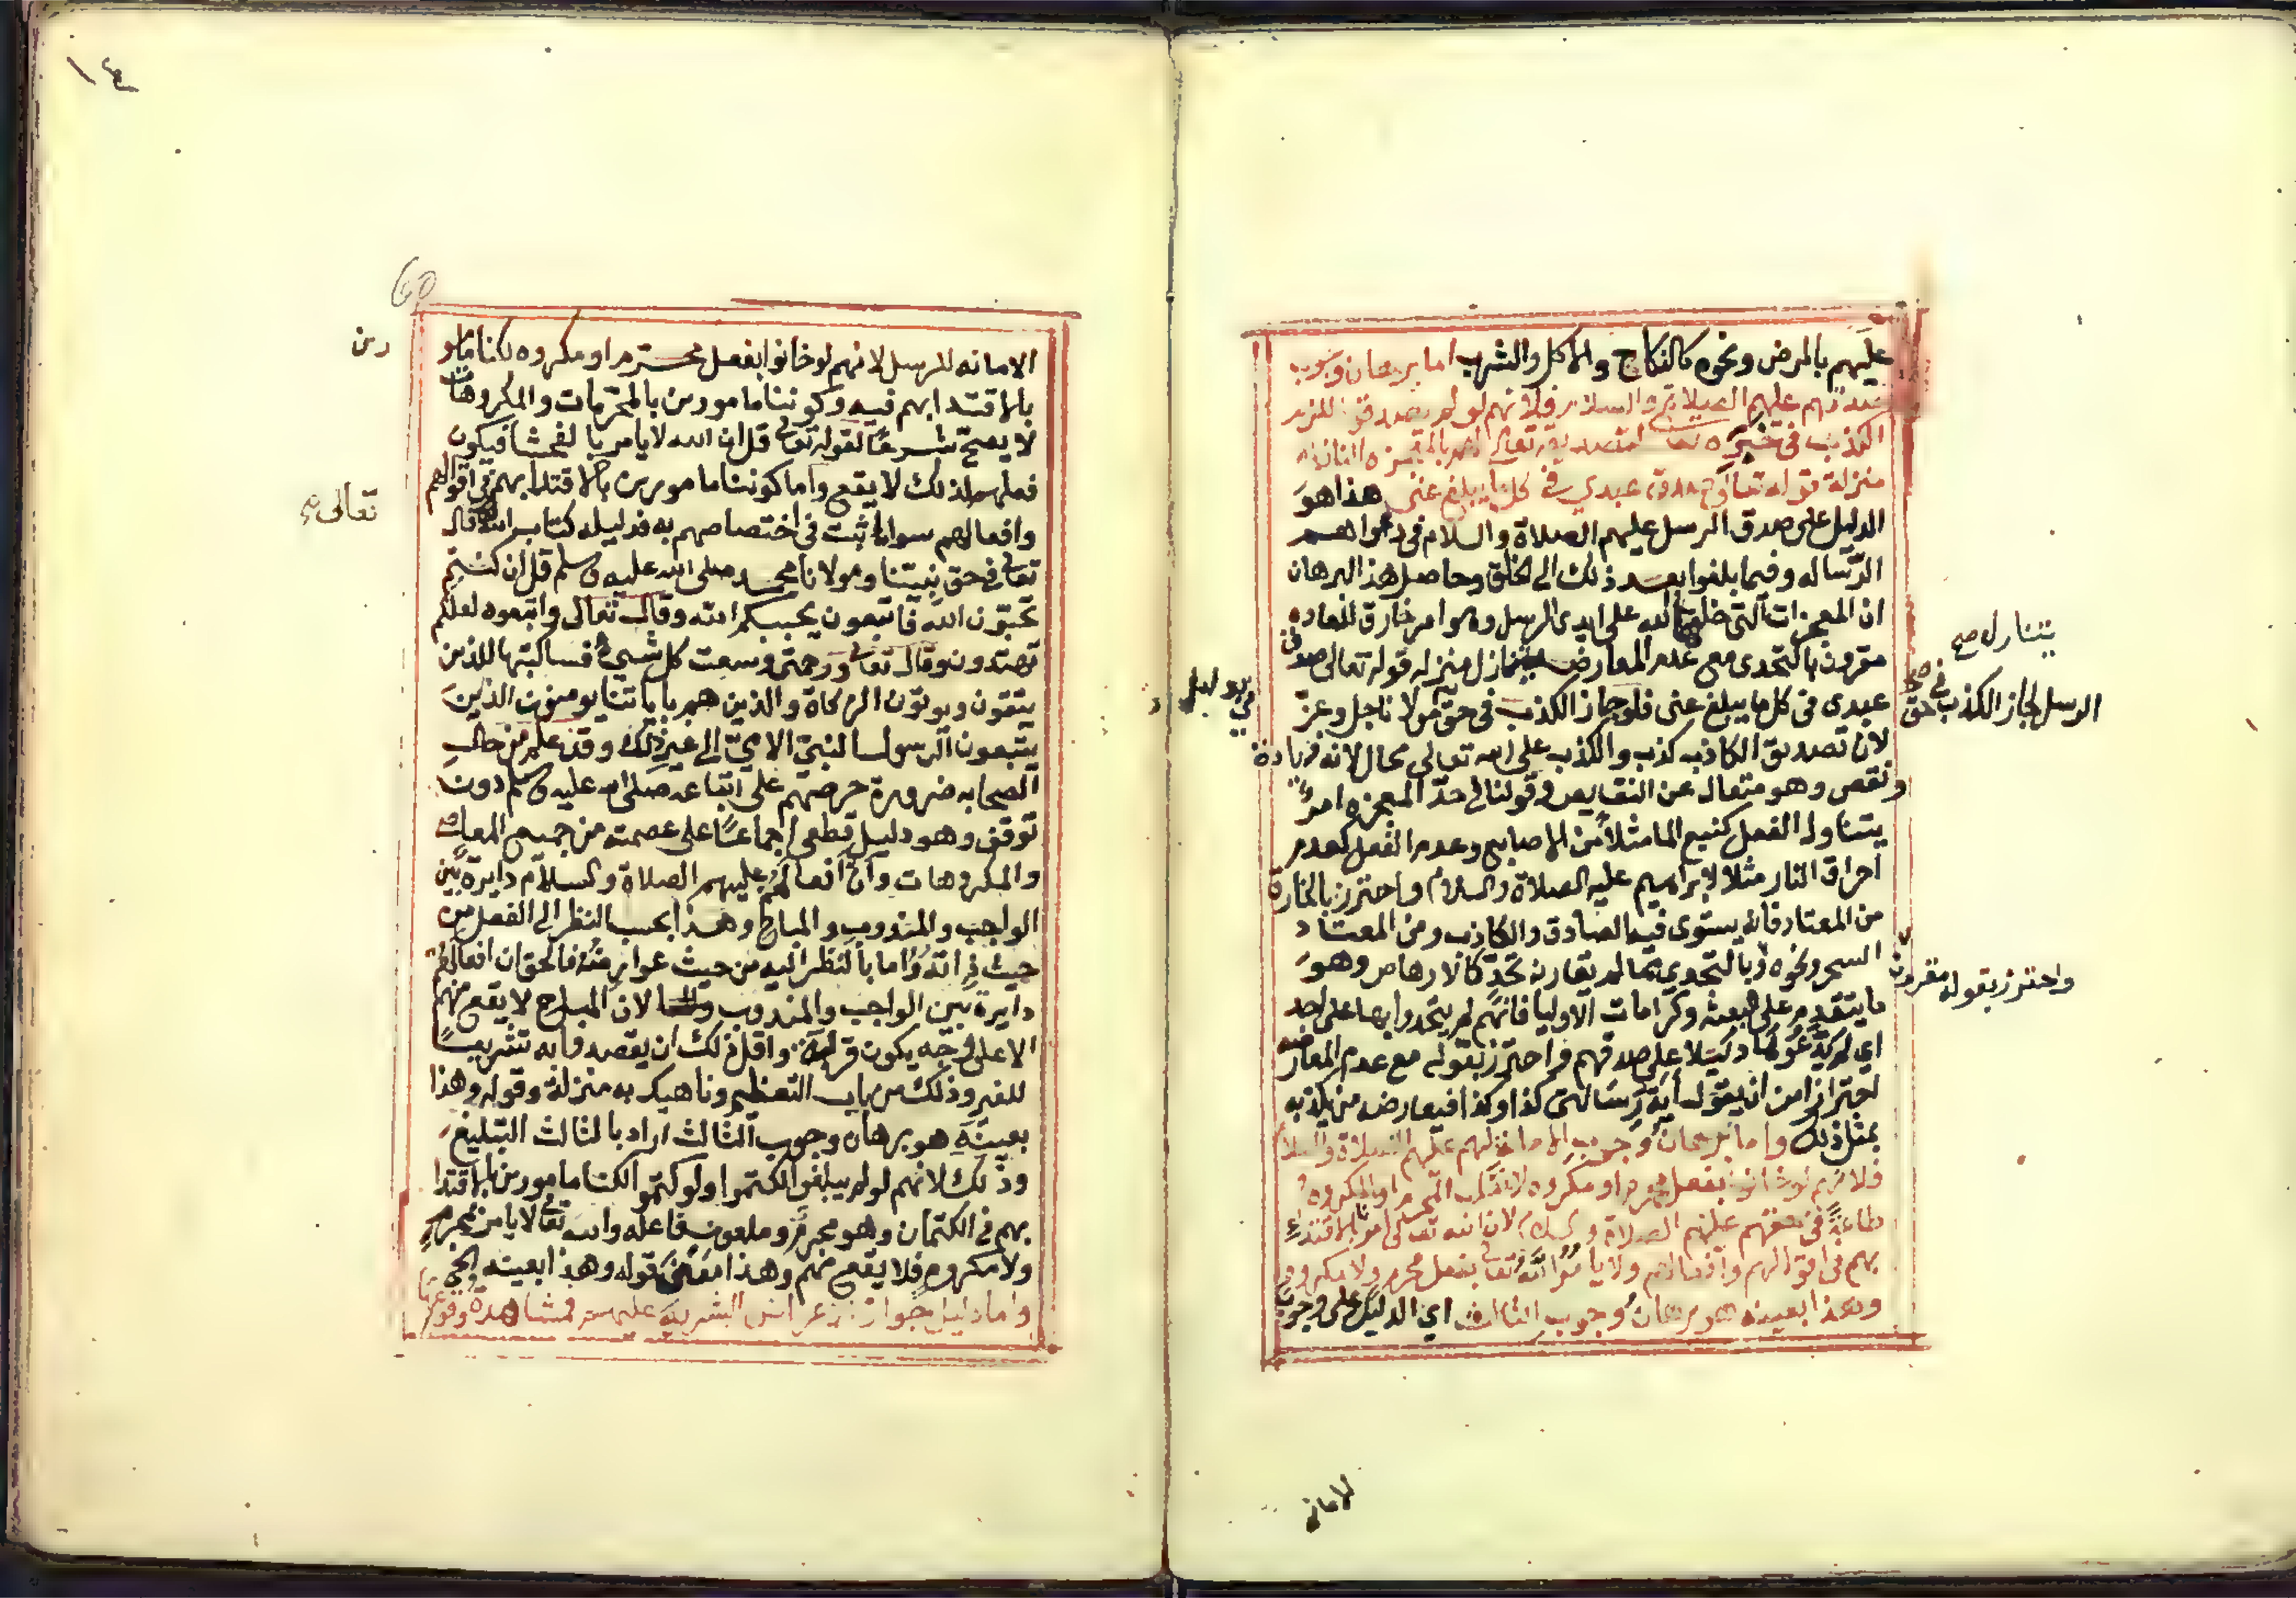 عليهم بالمرض ونحوه كالنكاح والاكل والشرب اما برهان وجوب
صدقهم عليهم الصلاة والسلام فلانهم لو لم يصدقوا للزم
الكذب في خبره تعالى لتصديقه تعالى لهم بالمعجزه النازله
منزلة قوله تعالى صدق عبدي في كل ما يبلغ عني هذا هو
الدليل على صدق الرسل عليهم الصلاة والسلام في دعواهم
الرساله وفيما بلغوا بعد ذلك الى الخلق وحاصل هذا البرهان
ان المعجزات التي خلقها الله على ايدي الرسل وهو امر خارق للعاده
مقرون بالتحدى مع عدم المعارض ينازل منزله قوله تعالى صدق
عبدى في كل ما يبلغ عني فلو جاز الكذب في حق مولانا جل وعز
لان تصديق الكاذب كذب والكذب على الله تعالى محال لانه
ونقص وهو متعال عن النقايص وقولنا في حد المعجزه امر
يتناول الفعل كنبع الما مثلا من الاصابع وعدم الفعل كعدم
احراق النار مثلا لابراهيم عليه الصلاة والسلام واحترز بالخارق
من المعتاد فانه يستوى فيه الصادق والكاذب ومن المعتاد
السحر ونحوه وبالتحدي مما لم يقارنه تحد كالارهاص وهو
ما يتقدم على البعثه وكرامات الاوليا فانهم لم يتحدوا بها على احد
اي لم يدعوها دليلا على صدقهم واحترز بقوله مع عدم المعارضه
احترازا من ان يقول اية رسالتي كذا وكذا فيعارضه من يكذبه
بمثل ذلك واما برهان وجوب الامانة لهم عليهم الصلاة والسلام
فلانهم لو خانوا بفعل محرم او مكروه لانقلب المحرم او المكروه
طاعة في حقهم عليهم الصلاة والسلام لان الله تعالى امرنا بالاقتداء
بهم في اقوالهم وافعالهم ولا يامر الله تعالى بفعل محرم ولا مكروه
وهذا بعينه هو برهان وجوب الثالث اي الدليل على وجوب
يتناول صح
الرسل لجاز الكذب في حق
واحترز بقوله مقرون
الامانه
١٤
60
الامانه للرسل لانهم لو خانوا بفعل محرم او مكروه لكنا مامو
رين
بالاقتدا بهم فيه وكوننا مامورين بالمحرمات والمكروهات
لا يصح شرعا لقوله تعالى قل ان الله لا يامر بالفحشا فيكون
فعلهم لذلك لا يقع واما كوننا مامورين بالاقتدا بهم في اقوالهم
وافعالهم سوا ما ثبت في اختصاصهم به فدليله كتاب الله قال
تعالى
تعالى في حق نبينا ومولانا محمد صلى الله عليه وسلم قل ان كنتم
تحبون الله فاتبعون يحببكم الله وقال تعالى واتبعوه لعلكم
تهتدون وقال تعالى ورحمتي وسعت كل شيء فساكتبها للذين
يتقون ويوتون الزكاة والذين هم باياتنا يومنون الذين
يتبعون الرسول النبي الامي الى غير ذلك وقد علم من حال
الصحابه ضرورة حرصهم على اتباعه صلى الله عليه وسلم دون
توقف وهو دليل قطعي اجماعا على عصمته من جميع المعاصي
والمكروهات وان افعالهم عليهم الصلاة والسلام دايرة بين
الواجب والمندوب والمباح وهذا بحسب النظر الى الفعل من
حيث ذاته واما بالنظر اليه من حيث عوارضه فالحق ان افعالهم
دايرة بين الواجب والمندوب لان المباح لا يقع منهم
الا على وجه يكون قربة واقل ذلك ان يقصدوا به تشريعا
للغير وذلك من باب التعظيم وناهيك به منزلة وقوله وهذا
بعينه هو برهان وجوب الثالث اراد بالثالث التبليغ
وذلك لانهم لو لم يبلغوا لكتموا ولو كتموا لكنا مامورين بالاقتدا
بهم في الكتمان وهو محرم وملعون فاعله والله تعالى لا يامر بمحرم
ولا مكروه فلا يقع منهم وهذا معنى قوله وهذا بعينه الخ
واما دليل جواز الاعراض البشرية عليهم فمشاهدة وقوعها